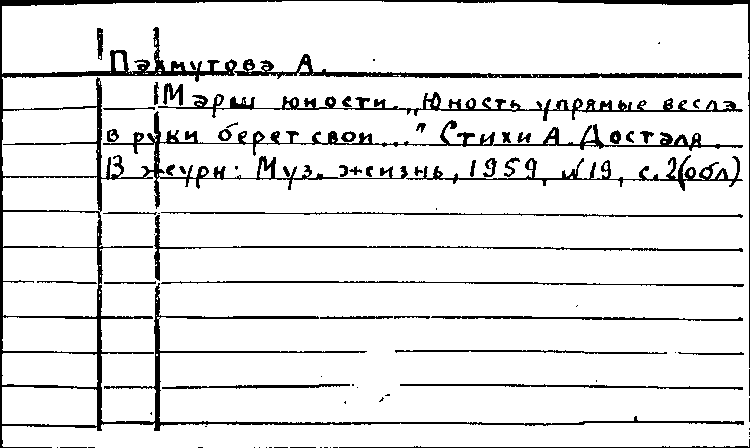 Пахмутова, А.
Марш юности. „Юность упрямые весла
в руки берет свои..." Стихи А. Досталя.
В журн: Муз. жизнь, 1959, №19, с. 2(обл)